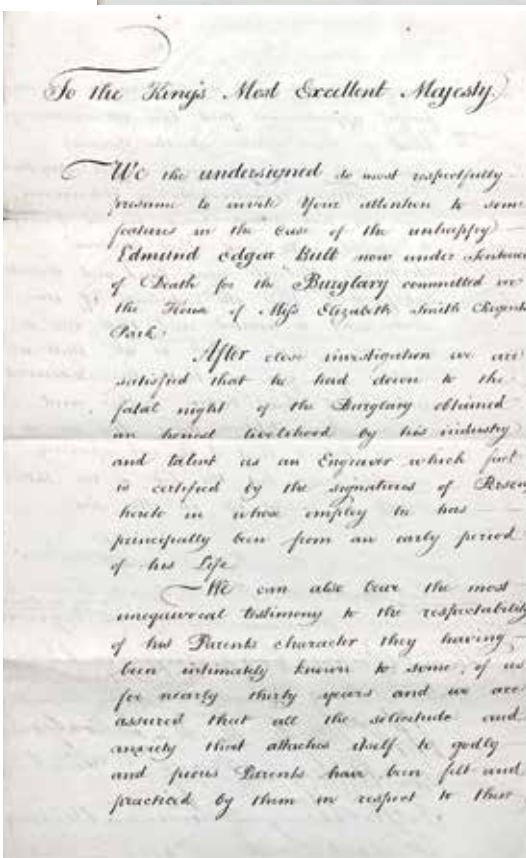 To the King's Most Excellent Majesty
We the undersigned do most respectfully
presume to invite Your attention to some
features in the Case of the unhappy
Edmund Edgar Bult now under Sentence
of Death for the Burglary committed in
the House of Miss Elizabeth Smith Regents
Park.
After close investigation we are
satisfied that he had down to the
fatal night of the Burglary obtained
an honest livelihood by his industry
and talent as an Engraver which fact
is certified by the signatures of
hereto in whose employ he has
principally been from an early period
of his Life
We can also bear the most
unequivocal testimony to the respectability
of his Parents character they having
been intimately known to some of us
for nearly thirty years and we are
assured that all the solicitude and
anxiety that attaches itself to godly
and pious Parents have been felt and
practiced by them in respect to their